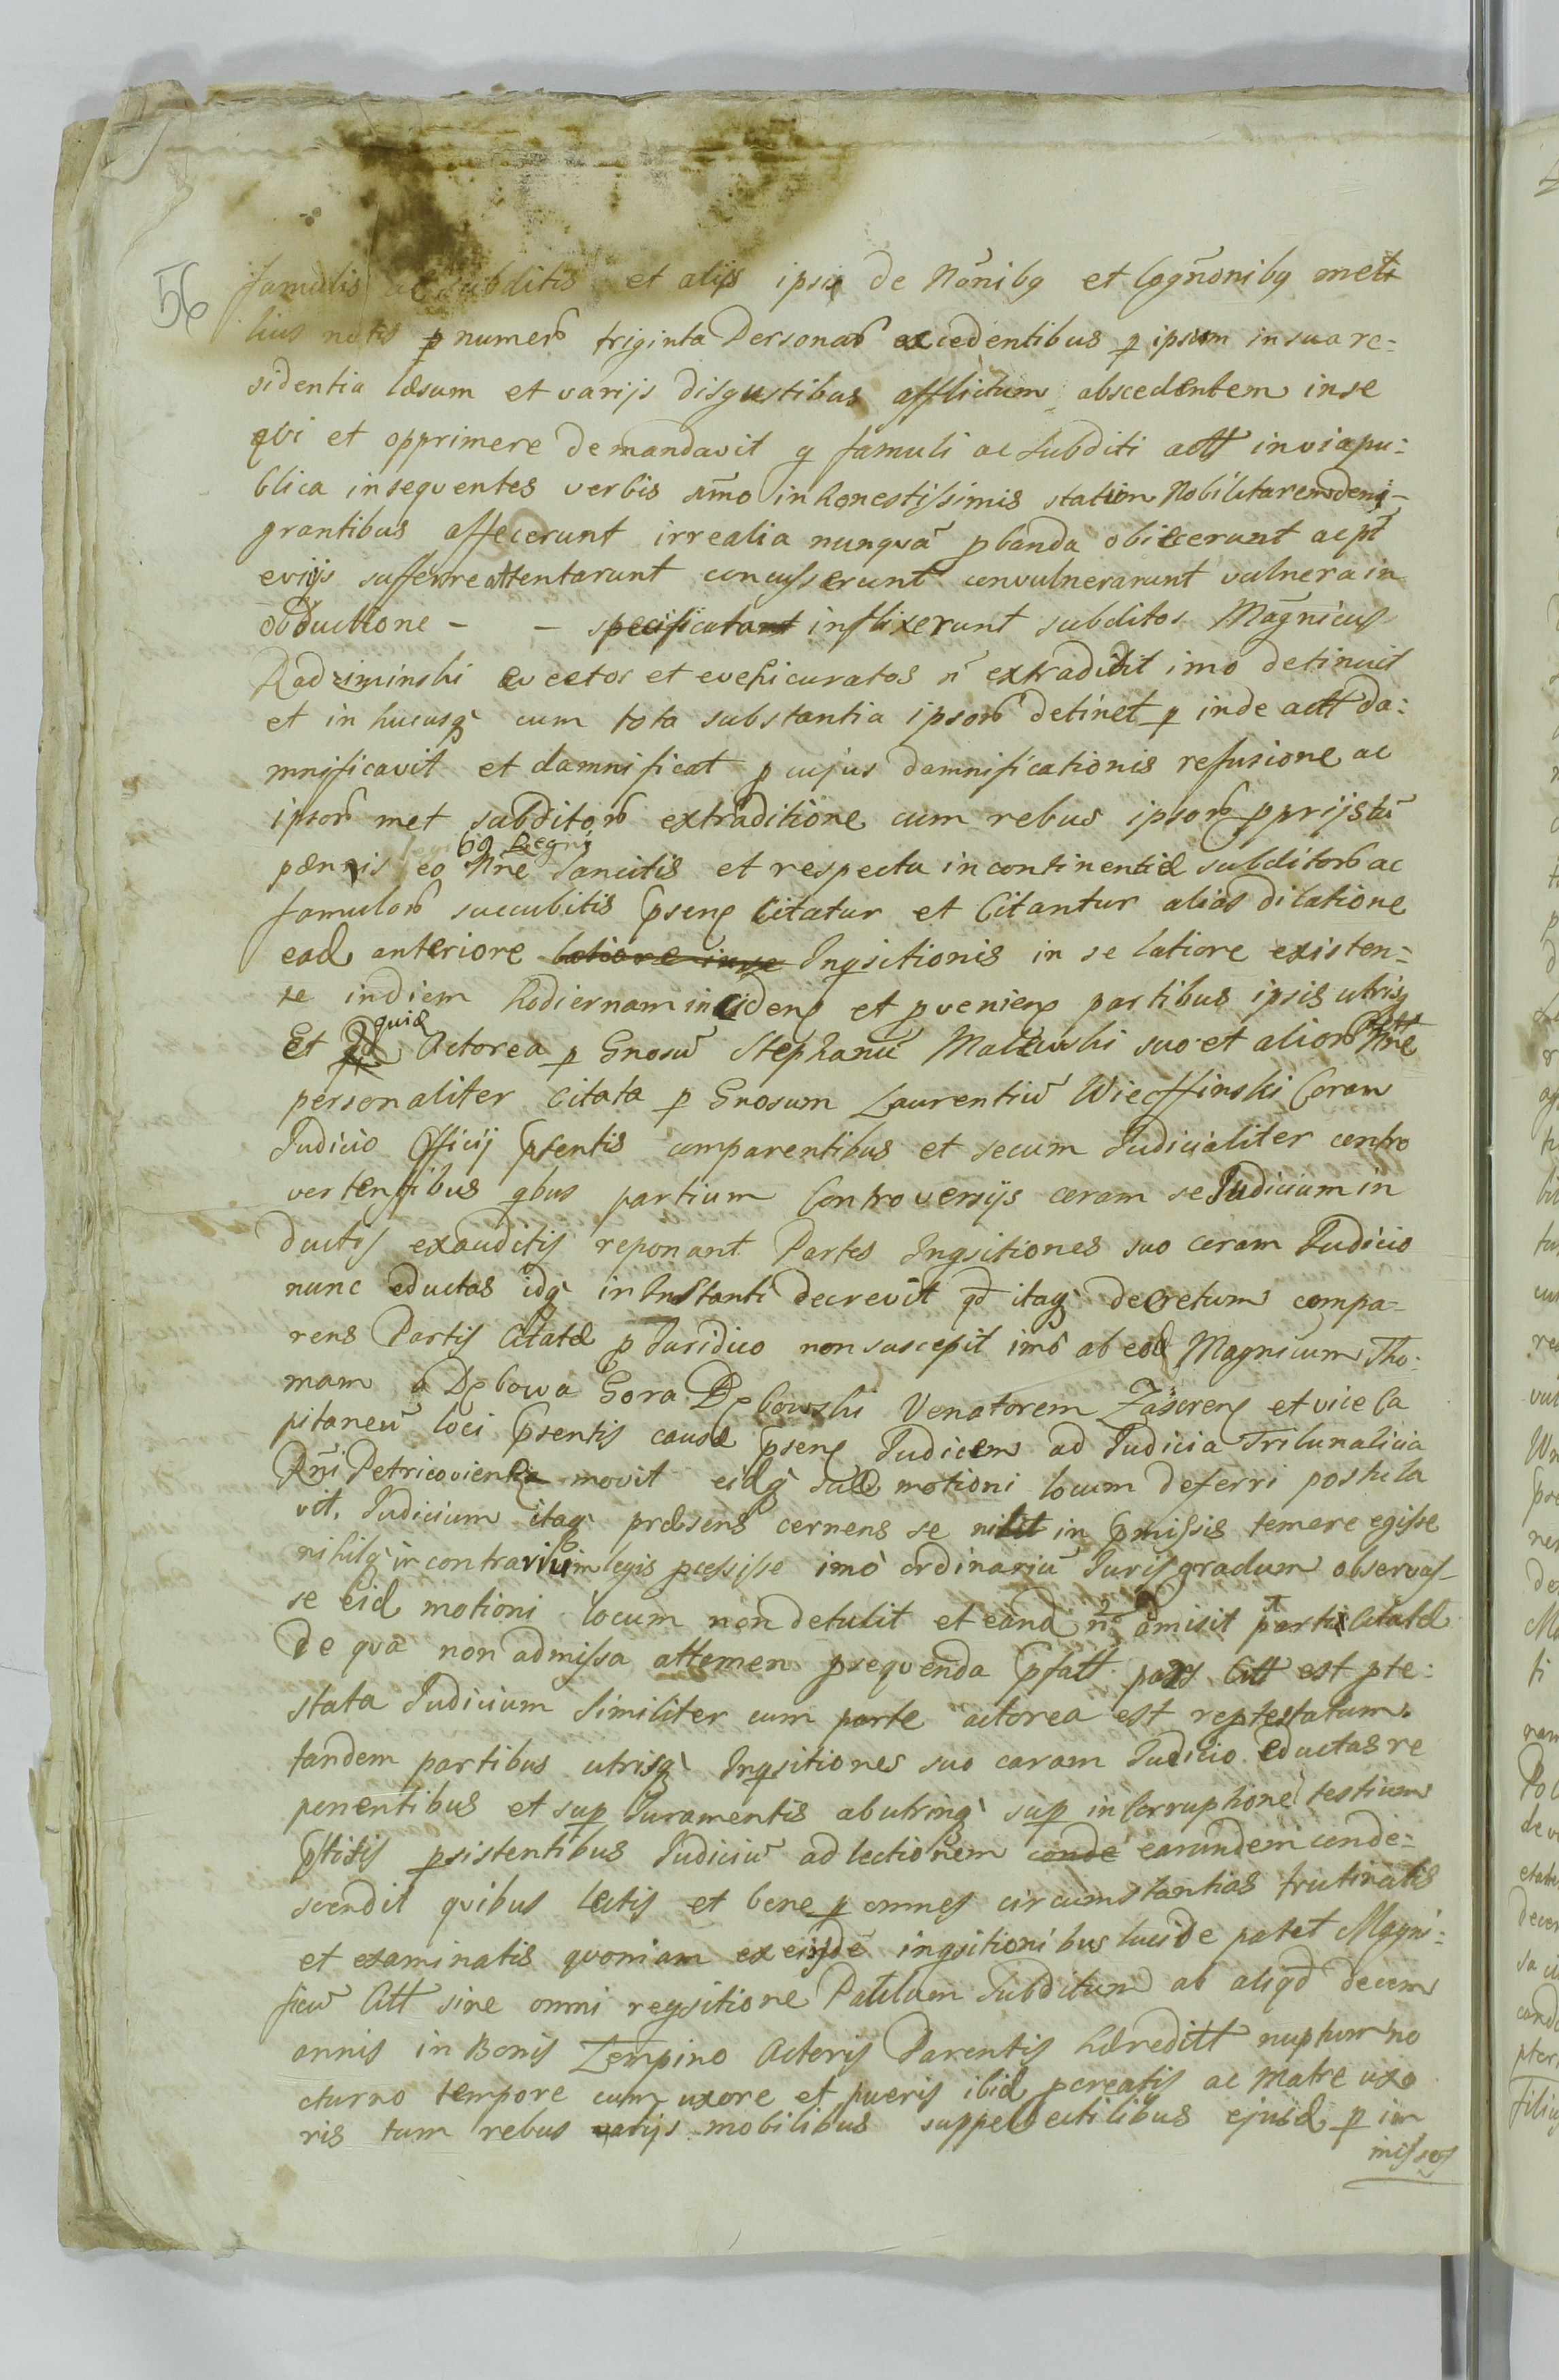 56
famulis ac subditis et alijs ipsis de Nōnibq et Cogn̄onibq meli
lius notis p numerō triginta Personarō excedentibus p ipsum in sua re=
sidentia læsum et varijs disgustibus afflictum abscedentem inse
qvi et opprimere demandavit q famuli ac Subditi actt in via pu:
blica insequentes verbis sm̄o inhonestissimis statum Nobilitarem deni-
grantibus affecerunt irrealia nunqvā pbanda obiecerunt ac pt
evijs sufferre attentarunt concusserunt convulnerarunt vulnera in
obductione - - specificata inflixerunt subditos Magn̄icus
Radziminski evectos et evehicuratos n̄ extradidit imo detinuit
et in hucusq cum tota substantia ipsorō detinet p inde actt da:
mnificavit et damnificat p cujus damnificationis refusione ac
ipsorō met subditorō extraditione cum rebus ipsorō pprijs tū
pænis eo Nn̄e legibq Regni Sancitis et respectu incontinentiæ subditorō ac
famulorō succubitis Pseng Citatur et Citantur alias dilatione
ead anteriore latiore in se Inqsitionis in se latiore existen=
te in diem hodiernam incideng et pvenieng partibus ipsis utrisq
Et quia Actorea p Gnosū Stephanū Malewski suo et aliorō actt Nn̄e
personaliter Citata p Gnosum Laurentiū Wieczffinski Coram
Judicio Officij Psentis comparentibus et secum Judicialiter contro
vertentibus qbus partium Controversijs coram se Judicium in
ductis exauditis reponant Partes Inqsitiones suo coram Judicio
nunc eductas idq in Instanti decrevit qd itaq decretum compa=
rens Partis Citatæ p Juridico non suscepit imō ab eod Magnicum Tho:
mam a Dębowa Gora Dębowski Venatorem Zascreng et vice Ca
pitaneū loci Psentis causæ Pseng Judicem ad Judicia Tribunalicia
Rn̄i Petricovien movit eidq suæ motioni locum deferri postula
vit. Judicium itaq præsens cernens se nihil in Pmissis temere egisse
nihilq in contrarium legis pcessisse imò ordinariū Juris gradum observas-
se eid motioni locum non detulit et eand n̄ admisit parti Citatæ
de qva non admissa attamen psequenda Pfatt pars Citt est pte:
stata Judicium Similiter cum parte actorea est reptestatum.
tandem partibus utrisq Inqsitiones suo coram Judicio eductas re
ponentibus et sup Juramentis ab utrinq sup in Corruptione testium
Pstitis psistentibus Judiciū ad lectionem conde earundem conde=
scendit qvibus lectis et bene p omnes circumstantias trutinatis
et examinatis qvoniam ex eisdē inqsitionibus lucide patet Magni:
ficū Citt sine omni reqsitione Paulum Subditum ab aliqd decem
annis in Bonis Zempino Actoris Parentis hæreditt nuptum no
cturno tempore cum uxore et pueris ibid pcreatis ac Matre uxo
ris tum rebus varijs mobilibus suppellectilibus ejusd p im
missos